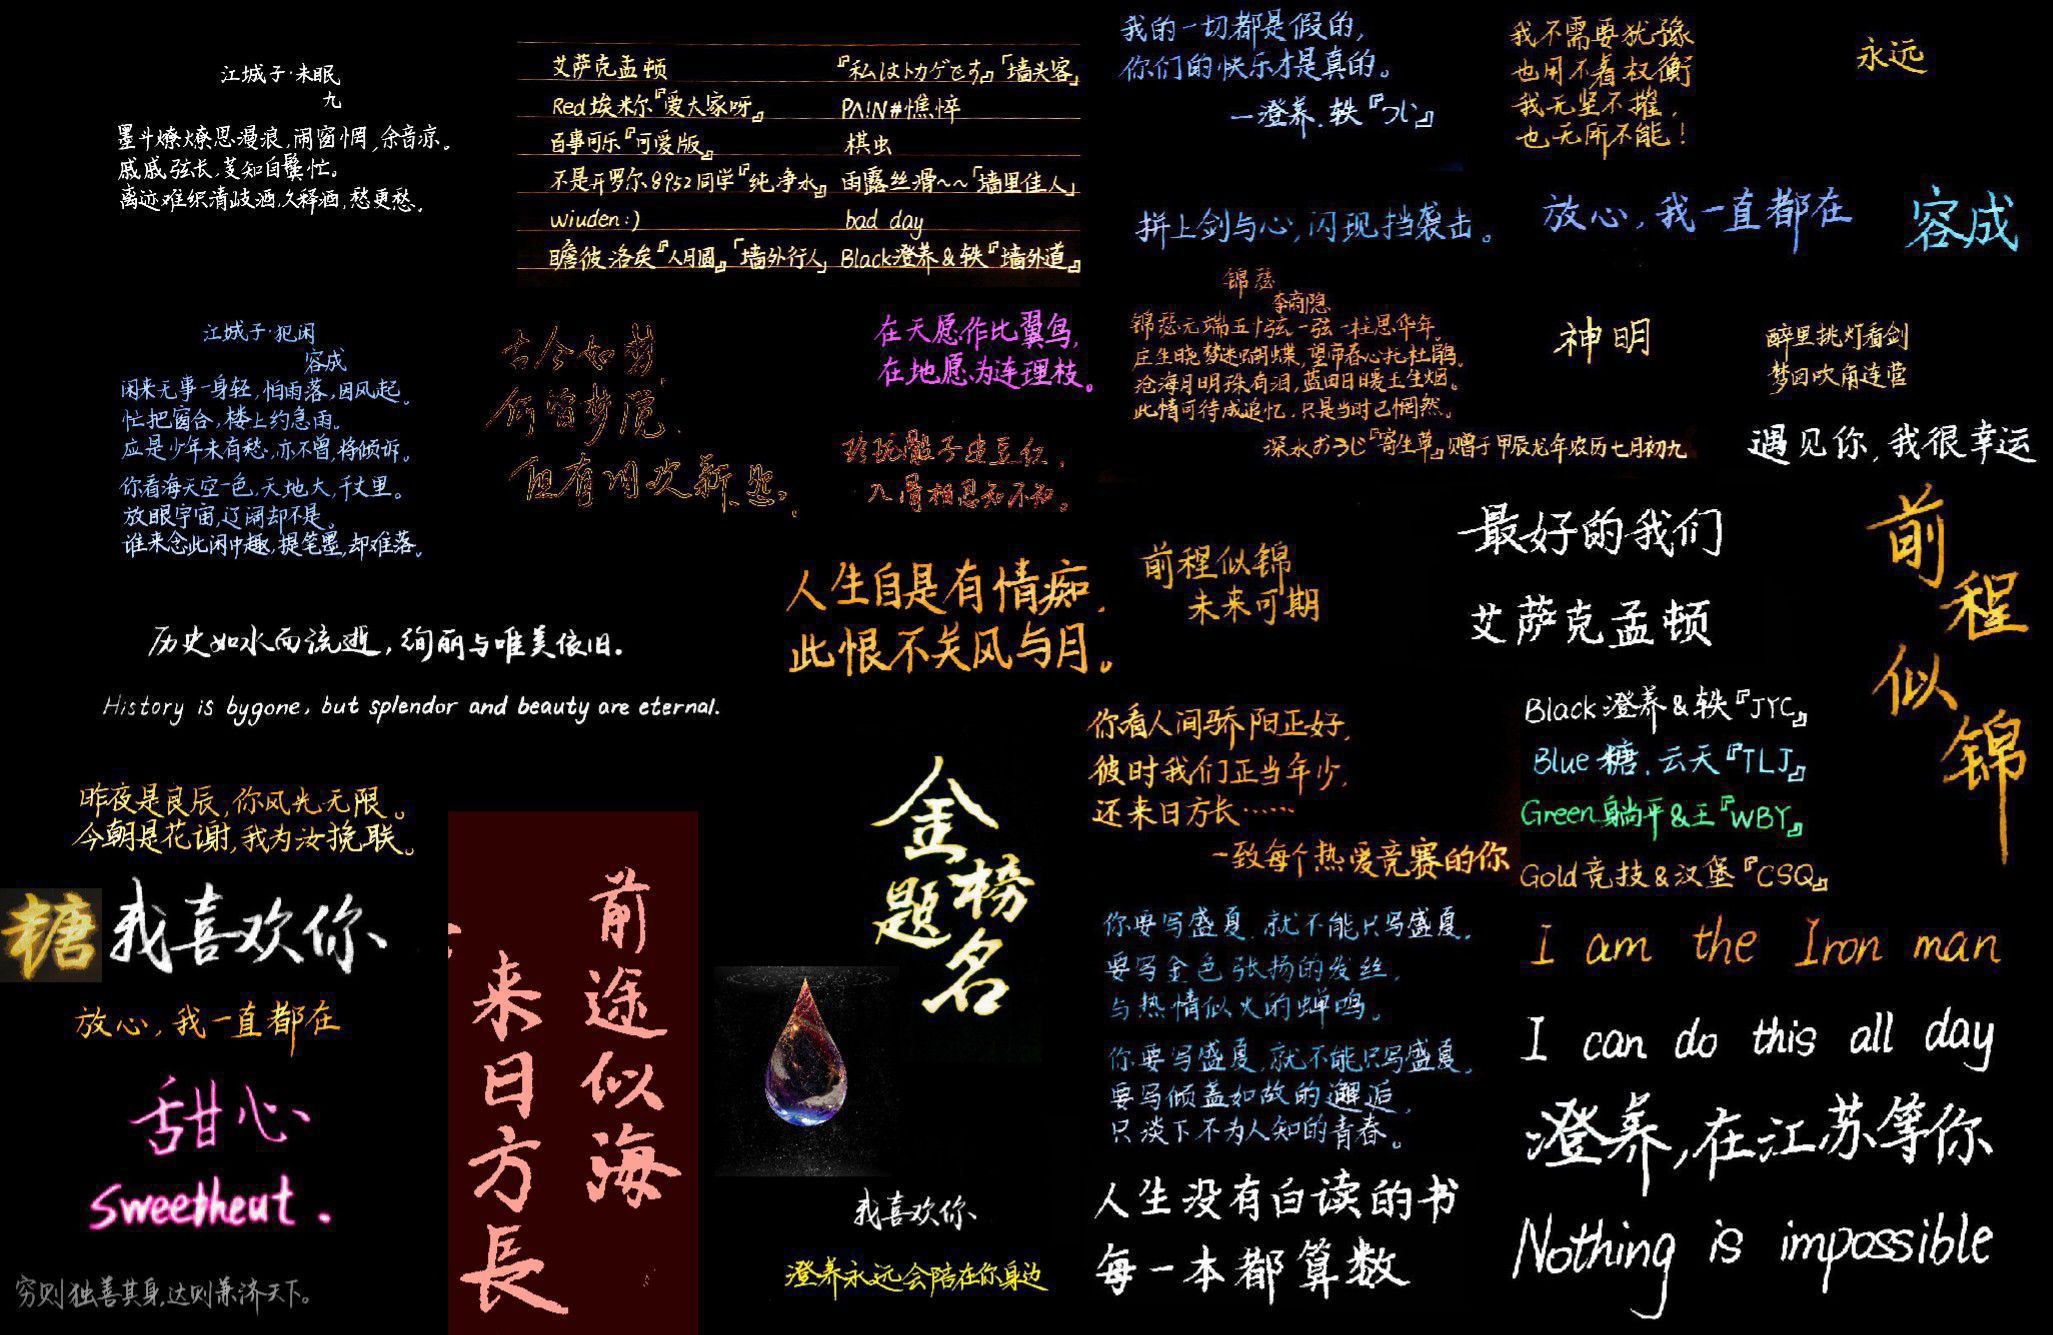 江城子·未眠
九
墨斗燎燎思漫浪,闹窗惘,余音凉。
戚戚弦长,芰知自鬓忙。
离迹难织清歧酒,久释酒,愁更愁。
艾萨克孟顿
Red埃米尔『爱大家呀』
百事可乐『可爱版』
不是开罗尔8952同学『纯净水』
wiuden:)
瞻彼洛矣『人月圆』「墙外行人」
『私はトカゲです』「墙头客」
PAIN#憔悴
棋虫
雨露丝滑~~「墙里佳人」
bad day
Black澄养&轶『墙外道』
我的一切都是假的,
你们的快乐才是真的。
—澄养.轶『つじ』
我不需要犹豫
也用不着权衡
我无坚不摧,
也无所不能!
永远
拼上剑与心,闪现挡袭击。
放心,我一直都在
容成
江城子·犯闲
容成
闲来无事一身轻,怕雨落,因风起。
忙把窗合,楼上约急雨。
应是少年未有愁,亦不曾,将倾诉。
你看海天空一色,天地大,千丈里。
放眼宇宙,辽阔却不是。
谁来念此闲中趣,提笔墨,却难落。
古今如梦,
何曾梦觉,
但有旧欢新怨。
在天愿作比翼鸟,
在地愿为连理枝。
玲珑骰子安豆红,
入骨相思知不知。
锦瑟
李商隐
锦瑟无端五十弦,一弦一柱思华年。
庄生晓梦迷蝴蝶,望帝春心托杜鹃。
沧海月明珠有泪,蓝田日暖玉生烟。
此情可待成追忆,只是当时已惘然。
深水おうじ『寄生草』赠于甲辰龙年农历七月初九
神明
醉里挑灯看剑
梦回吹角连营
遇见你,我很幸运
历史如水而流逝,绚丽与唯美依旧.
History is bygone, but splendor and beauty are eternal.
人生自是有情痴,
此恨不关风与月。
前程似锦
未来可期
最好的我们
艾萨克孟顿
前程似锦
Black澄养&轶『JYC』
Blue糖.云天『TLJ』
Green躺平&王『WBY』
Gold竞技&汉堡『CSQ』
昨夜是良辰,你风光无限。
今朝是花谢,我为汝挽联。
糖
我喜欢你
放心,我一直都在
甜心
Sweetheut.
穷则独善其身,达则兼济天下。
前途似海
来日方長
金榜题名
我喜欢你
澄养永远会陪在你身边
你看人间骄阳正好,
彼时我们正当年少,
还来日方长……
—致每个热爱竞赛的你
你要写盛夏,就不能只写盛夏,
要写金色张扬的发丝,
与热情似火的蝉鸣。
你要写盛夏,就不能只写盛夏,
要写倾盖如故的邂逅,
只淡下不为人知的青春。
人生没有白读的书
每一本都算数
I am the Iron man
I can do this all day
澄养,在江苏等你
Nothing is impossible